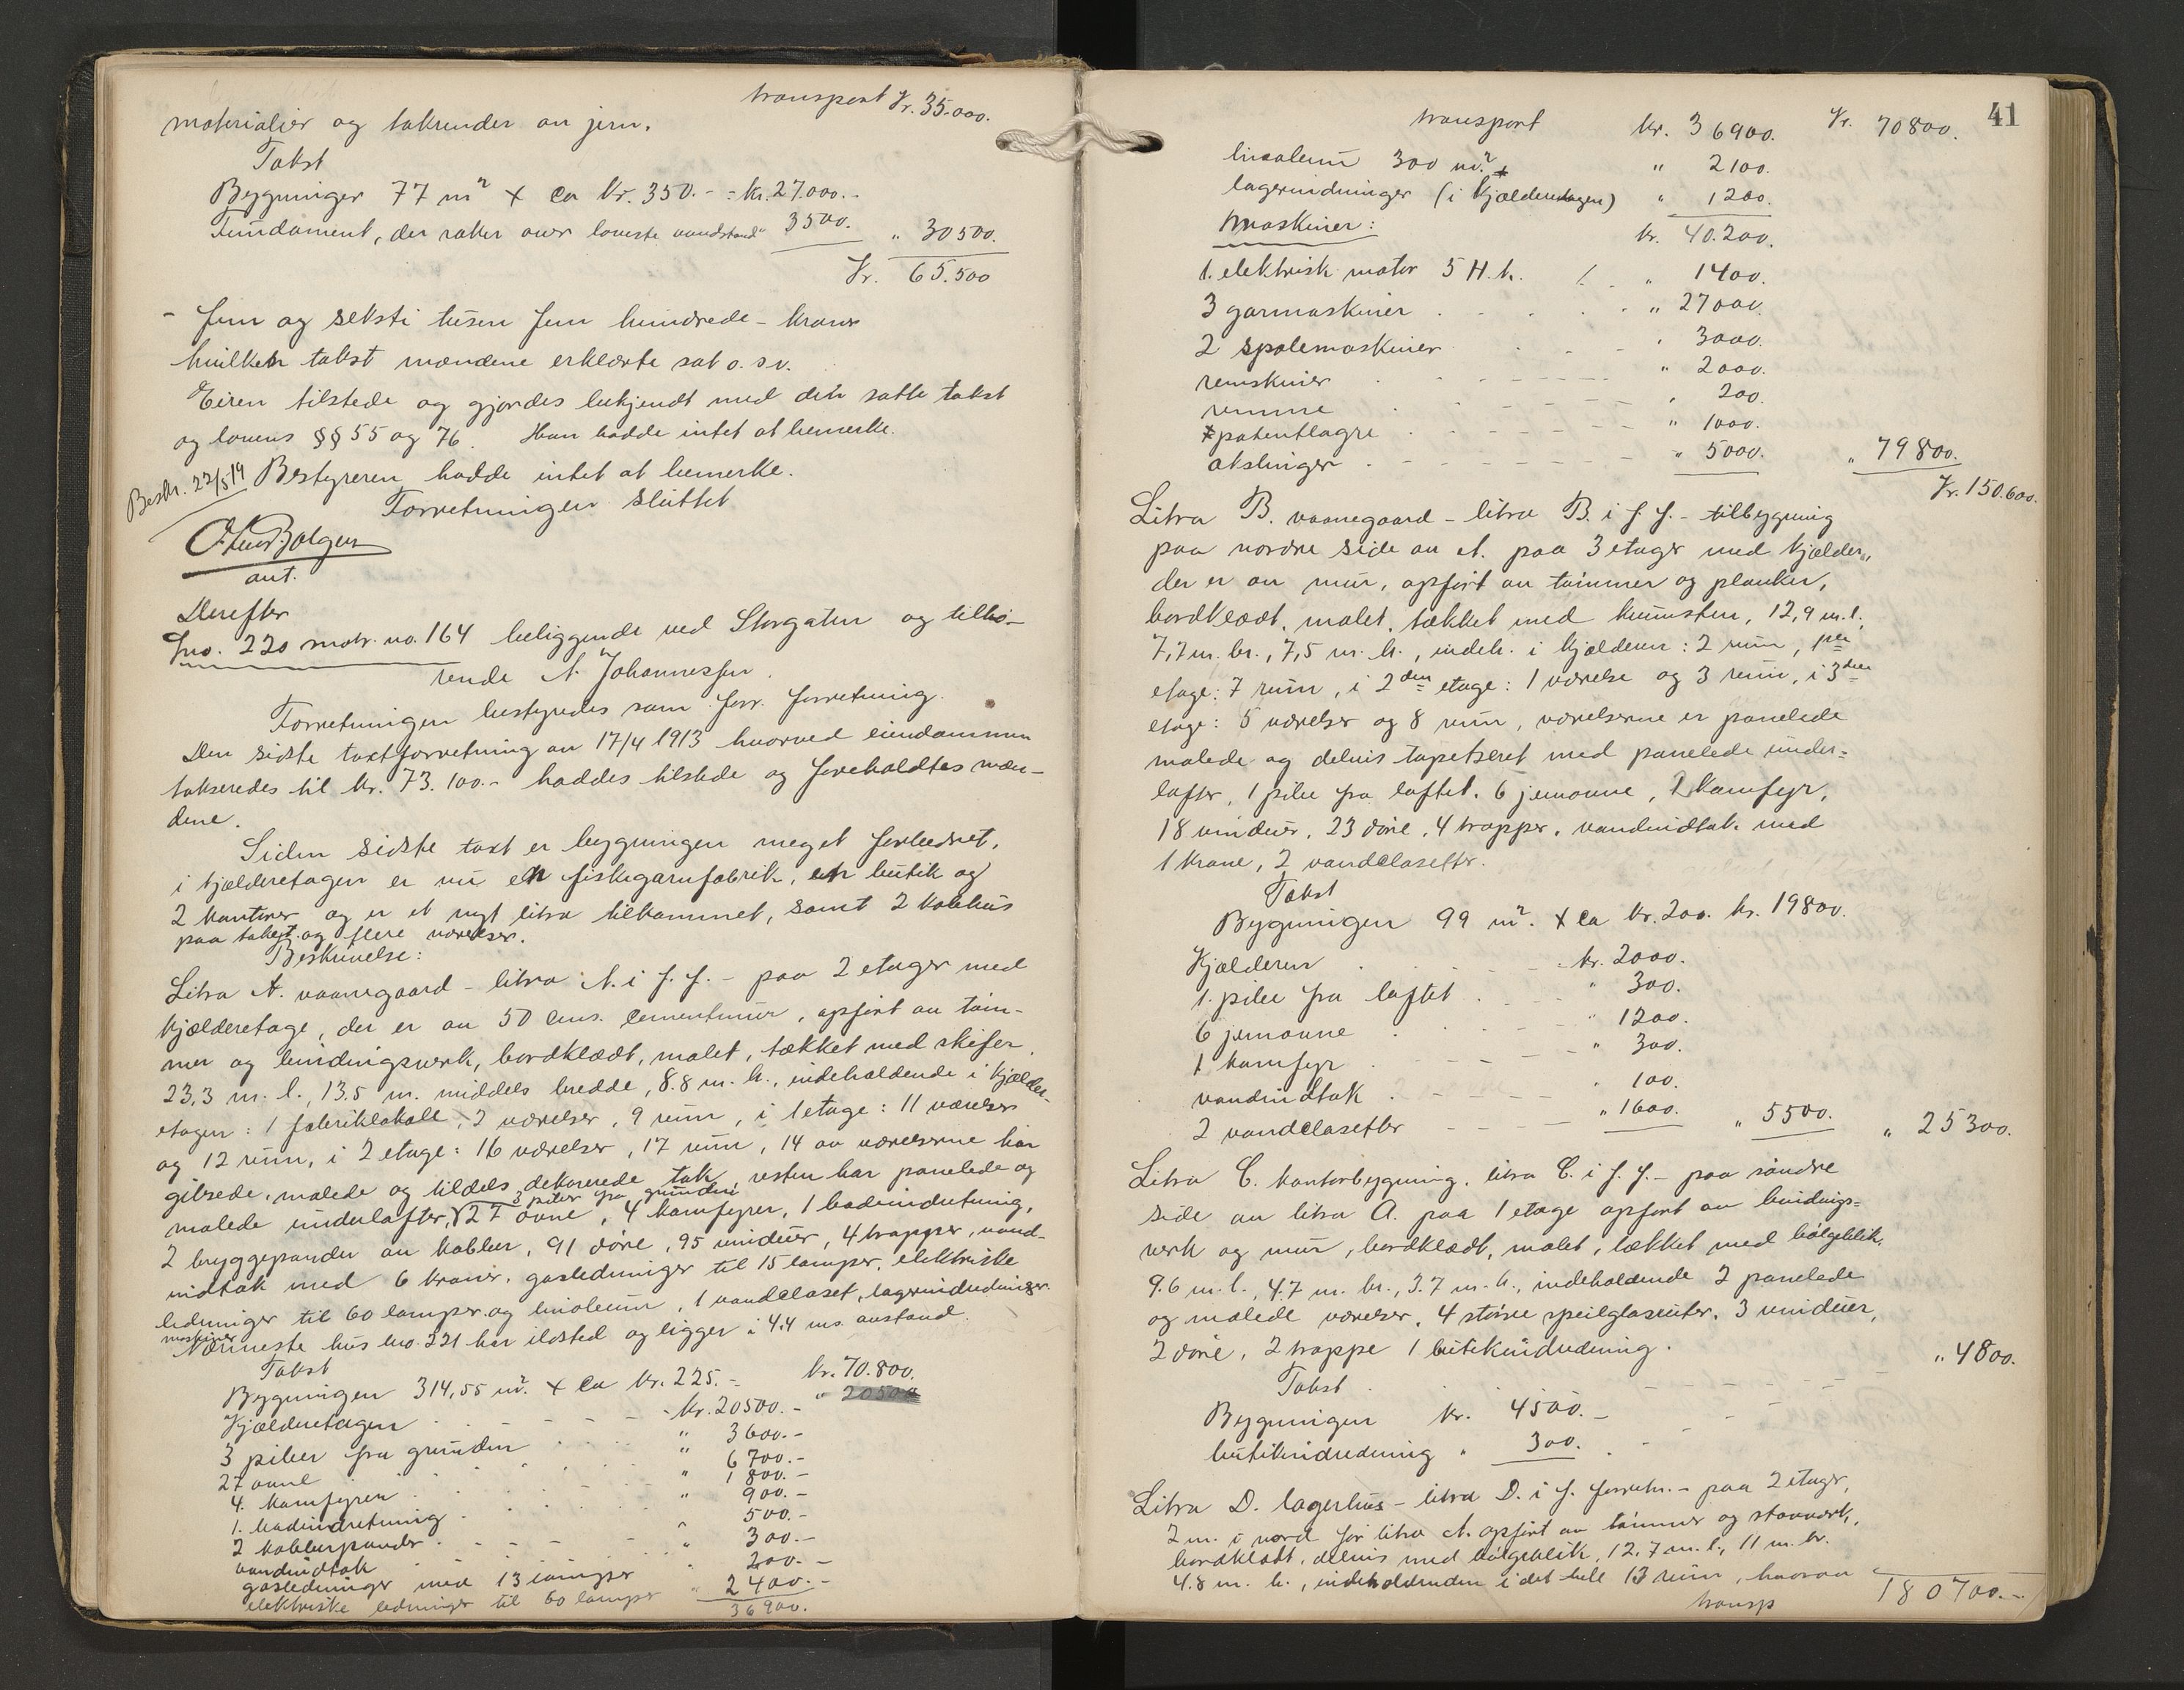 transport Kr. 35.000.
materialier og takrender av jern.
Takst
Bygninger 77 m² x ca kr. 350.- = kr. 27.000.-
Fundament, der rækker over laveste vandstand " 3500. " 30500.
Kr. 65.500
- fem og seksti tusen fem hundrede - kroner
hvilken takst mændene erklærte sat o. s. v.
Eieren tilstede og gjordes bekjendt med den satte takst
og lovens §§ 55 og 76. Han hadde intet at bemerke.
Beskr. 22/5 19 Bestyreren hadde intet at bemerke.
Forretningen sluttet
aut.
Derefter
Hno. 220 matr. no. 164 beliggende ved Storgaten og tilhø-
rende A. Johannessen.
Forretningen bestyredes som forr. forretning.
Den sidste taxtforretning av 17/4 1913 hvorved eiendommen
takseredes til kr. 73.100.- haddes tilstede og foreholdtes mæn-
dene.
Siden sidste taxt er bygningen meget forbedret,
i kjælderetagen er nu en fiskegarnfabrik, en butik og
2 kontorer og er et nyt litra tilkommet, samt 2 kobhus
paa taket og flere værelser.
Beskrivelse:
Litra A. vaanegaard - litra A. i f. f. - paa 2 etager med
kjælderetage, der er av 50 cms. cementmur, opført av tøm-
mer og bindingsverk, bordklædt, malet, tækket med skifer.
23,3 m. l., 13.5 m. middels bredde, 8.8 m. h., indeholdende i kjælder-
etagen: 1 fabriklokale, 2 værelser, 9 rum, i 1 etage: 11 værelser
og 12 rum, i 2 etage: 16 værelser, 17 rum, 14 av værelserne har
gibsede, malede og tildels dekorerede tak, resten har panelede og
3 piber fra grunden
malede underlofter, 27 ovne, 4 komfyrer, 1 badeindretning,
2 bryggepander av kobber, 91 døre, 95 vinduer, 4 trapper, vand-
indtak med 6 kraner, gasledninger til 15 lamper, elektriske
ledninger til 60 lamper og linoleum, 1 vandcloset, lagerindredninger.
maskiner
Nærmeste hus hno. 221 har ildsted og ligger i 4.4 ms. avstand.
Takst
Bygningen 314,55 m². x ca kr. 225.- kr. 70.800.
Kjælderetagen kr. 20500.- " 20500
3 piber fra grunden " 3600.-
27 ovne " 6700.-
4. komfyrer " 1800.-
1. badeindretning " 900.-
2 kobberpander " 500.-
vandindtak " 300.-
gasledninger med 13 lamper " 200.-
elektriske ledninger til 60 lamper " 2400.-
36900.
41
transport kr. 36900. Kr. 70800.
linoleum 300 m². " 2100.
lagerindninger (i kjælderetagen) " 1200.
Maskiner: kr. 40.200.
1. elektrisk motor 5 H. k. " 1400.
3 garnmaskiner " 27000.
2 spolemaskiner " 3000.
remskiver " 2000.
remme " 200.
patentlagre " 1000.
akslinger " 5000. " 79800.
Kr. 150.600.
Litra B. vaanegaard - litra B. i f. f. - tilbygning
paa nordre side av A. paa 3 etager med kjælder,
der er av mur, opført av tømmer og planker,
bordklædt, malet, tækket med kunsten, 12,9 m. l.,
7,7 m. br., 7,5 m. h., indeh. i kjælderen: 2 rum, 1ste
etage: 7 rum, i 2den etage: 1 værelse og 3 rum, i 3die
etage: 5 værelser og 8 rum, værelserne er panelede
malede og delvis tapetseret med panelede under-
lofter, 1 pibe fra loftet, 6 jernovne, 1 komfyr,
18 vinduer, 23 døre, 4 trapper, vandindtak med
1 krane, 2 vandclosetter.
Takst
Bygningen 99 m². x ca kr. 200. kr. 19800.
Kjælderen kr. 2000.
1. pibe fra loftet " 300.
6 jernovne " 1200.
1 komfyr " 300.
vandindtak " 100.
2 vandclosetter " 1600. " 5500. " 25300.
Litra C. kontorbygning, litra C. i f. f. - paa søndre
side av litra A. paa 1 etage opført av bindings-
verk og mur, bordklædt, malet, tækket med bølgeblik,
9.6 m. l., 4.7 m. br., 3.7 m. h., indeholdende 2 panelede
og malede værelser, 4 større speilglasruter, 3 vinduer,
2 døre, 2 trappe 1 butikindredning.
Takst " 4800.
Bygningen kr. 4500.-
butikindredning " 300.
Litra D. lagerhus - litra D. i f. forretn. - paa 2 etager,
2 m. i nord for litra A. opført av tømmer og stavverk,
bordklædt, delvis med bølgeblik, 12,7 m. l., 11 m. br.
4.8 m. h., indeholdende i det hele 13 rum, hvorav
transp 180700.-